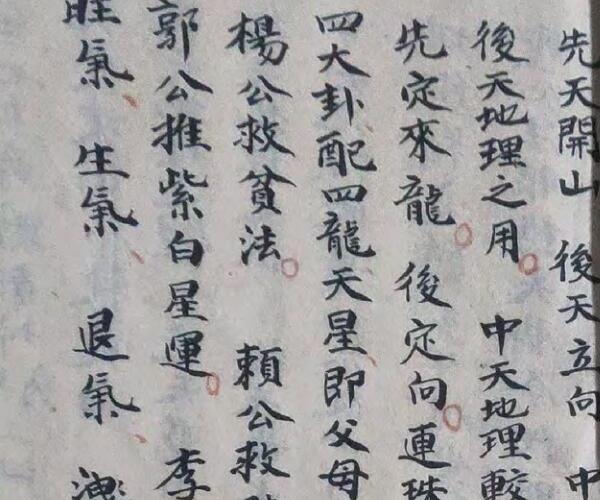 先天開山 後天立向 中
後天地理之用。 中天地理較
先定來龍。 後定向。連珠
四大卦配四龍天星、即父母
楊公救貧法。 賴公救
郭公推紫白星運。 李
旺氣、 生氣、 退氣、 洩